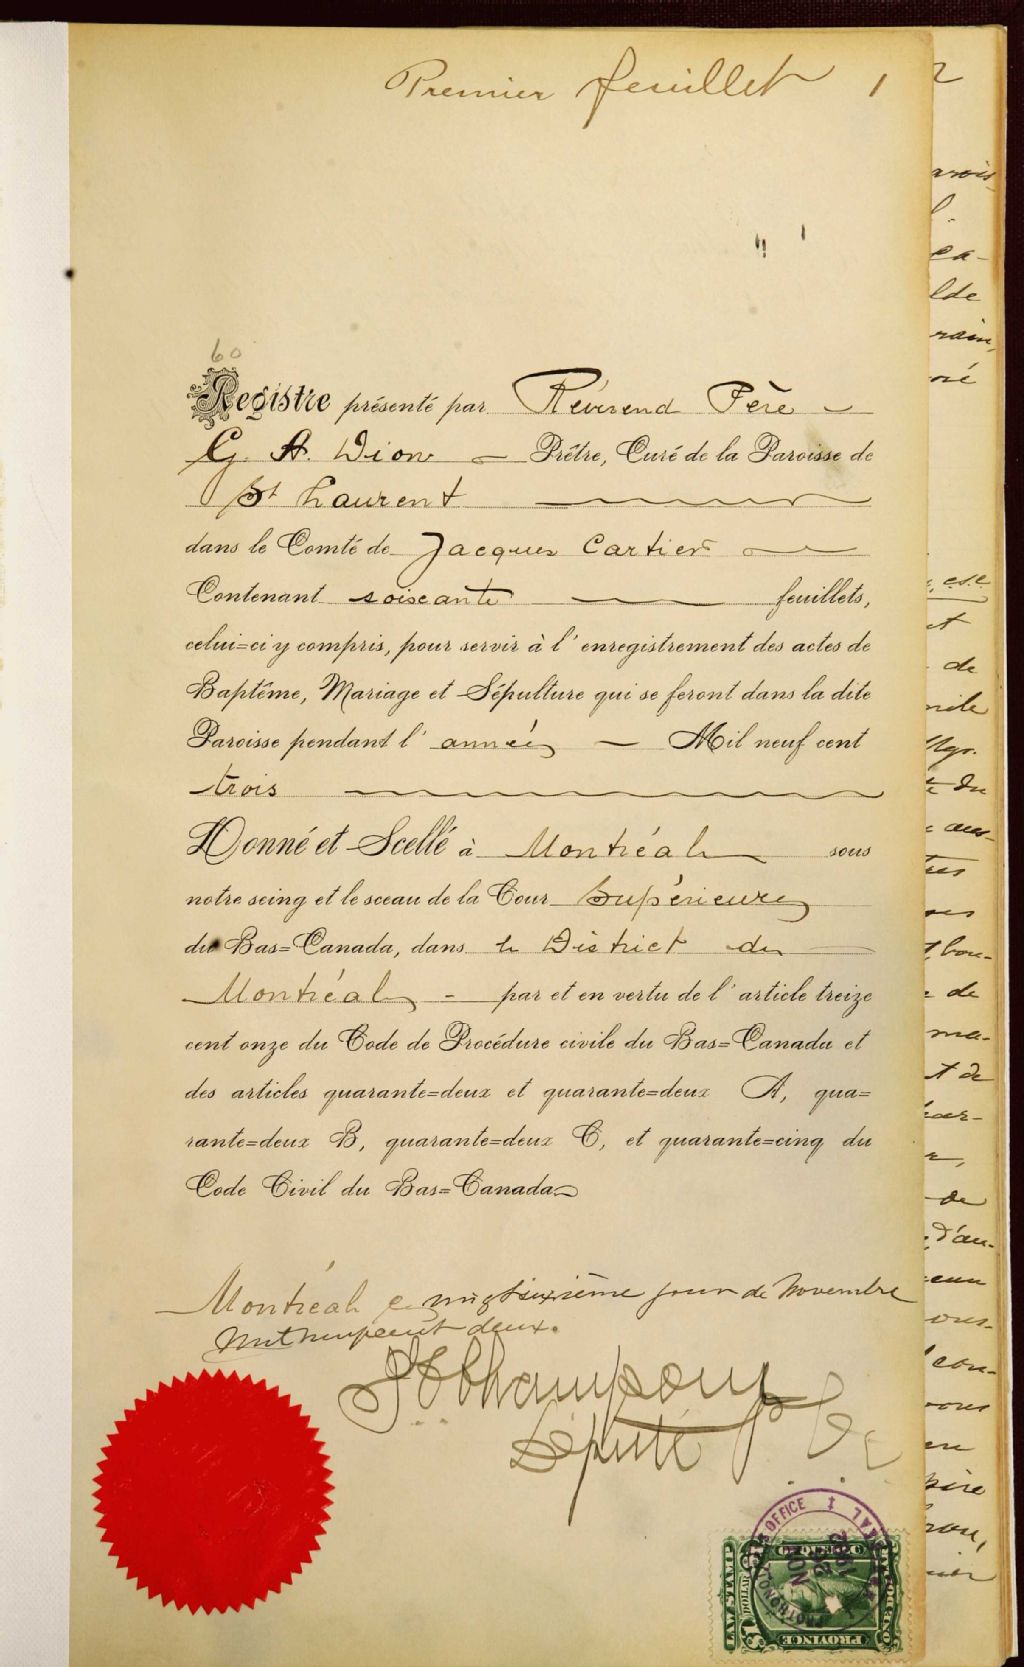 Premier feuillet 1
60
Registre présenté par Révérend Père
G. A. Dion Prêtre, Curé de la Paroisse de
St Laurent
dans le Comté de Jacques Cartier
Contenant soixante feuillets,
celui=ci y compris, pour servir à l'enregistrement des actes de
Baptême, Mariage et Sépulture qui se feront dans la dite
Paroisse pendant l'année Mil neuf cent
trois
Donné et Scellé à Montréal sous
notre seing et le sceau de la Cour Supérieure
du Bas=Canada, dans le District de
Montréal - par et en vertu de l'article treize
cent onze du Code de Procédure civile du Bas=Canada et
des articles quarante=deux et quarante=deux A, qua=
rante=deux B, quarante=deux C, et quarante=cinq du
Code Civil du Bas=Canada
Montréal ce vingtsixième jour de Novembre
mil neuf cent deux.
Député P.
OFFICE
NOV
26
LAW STAMP
QUEBEC
$1 DOLLAR
PROVINCE